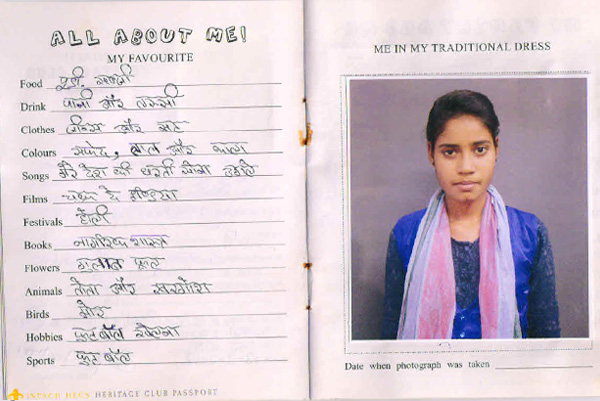 ALL ABOUT ME!
MY FAVOURITE
Food पूरी सब्जी
Drink पानी और लस्सी
Clothes जीन्स और सूट
Colours सफेद, लाल और काला
Songs मेरे देश की धरती सोना उगले
Films चक दे इण्डिया
Festivals होली
Books नागरिक शास्त्र
Flowers गुलाब फूल
Animals तोता और खरगोश
Birds मोर
Hobbies फुटबॉल खेलना
Sports फुटबॉल
HERITAGE CLUB PASSPORT
ME IN MY TRADITIONAL DRESS
Date when photograph was taken